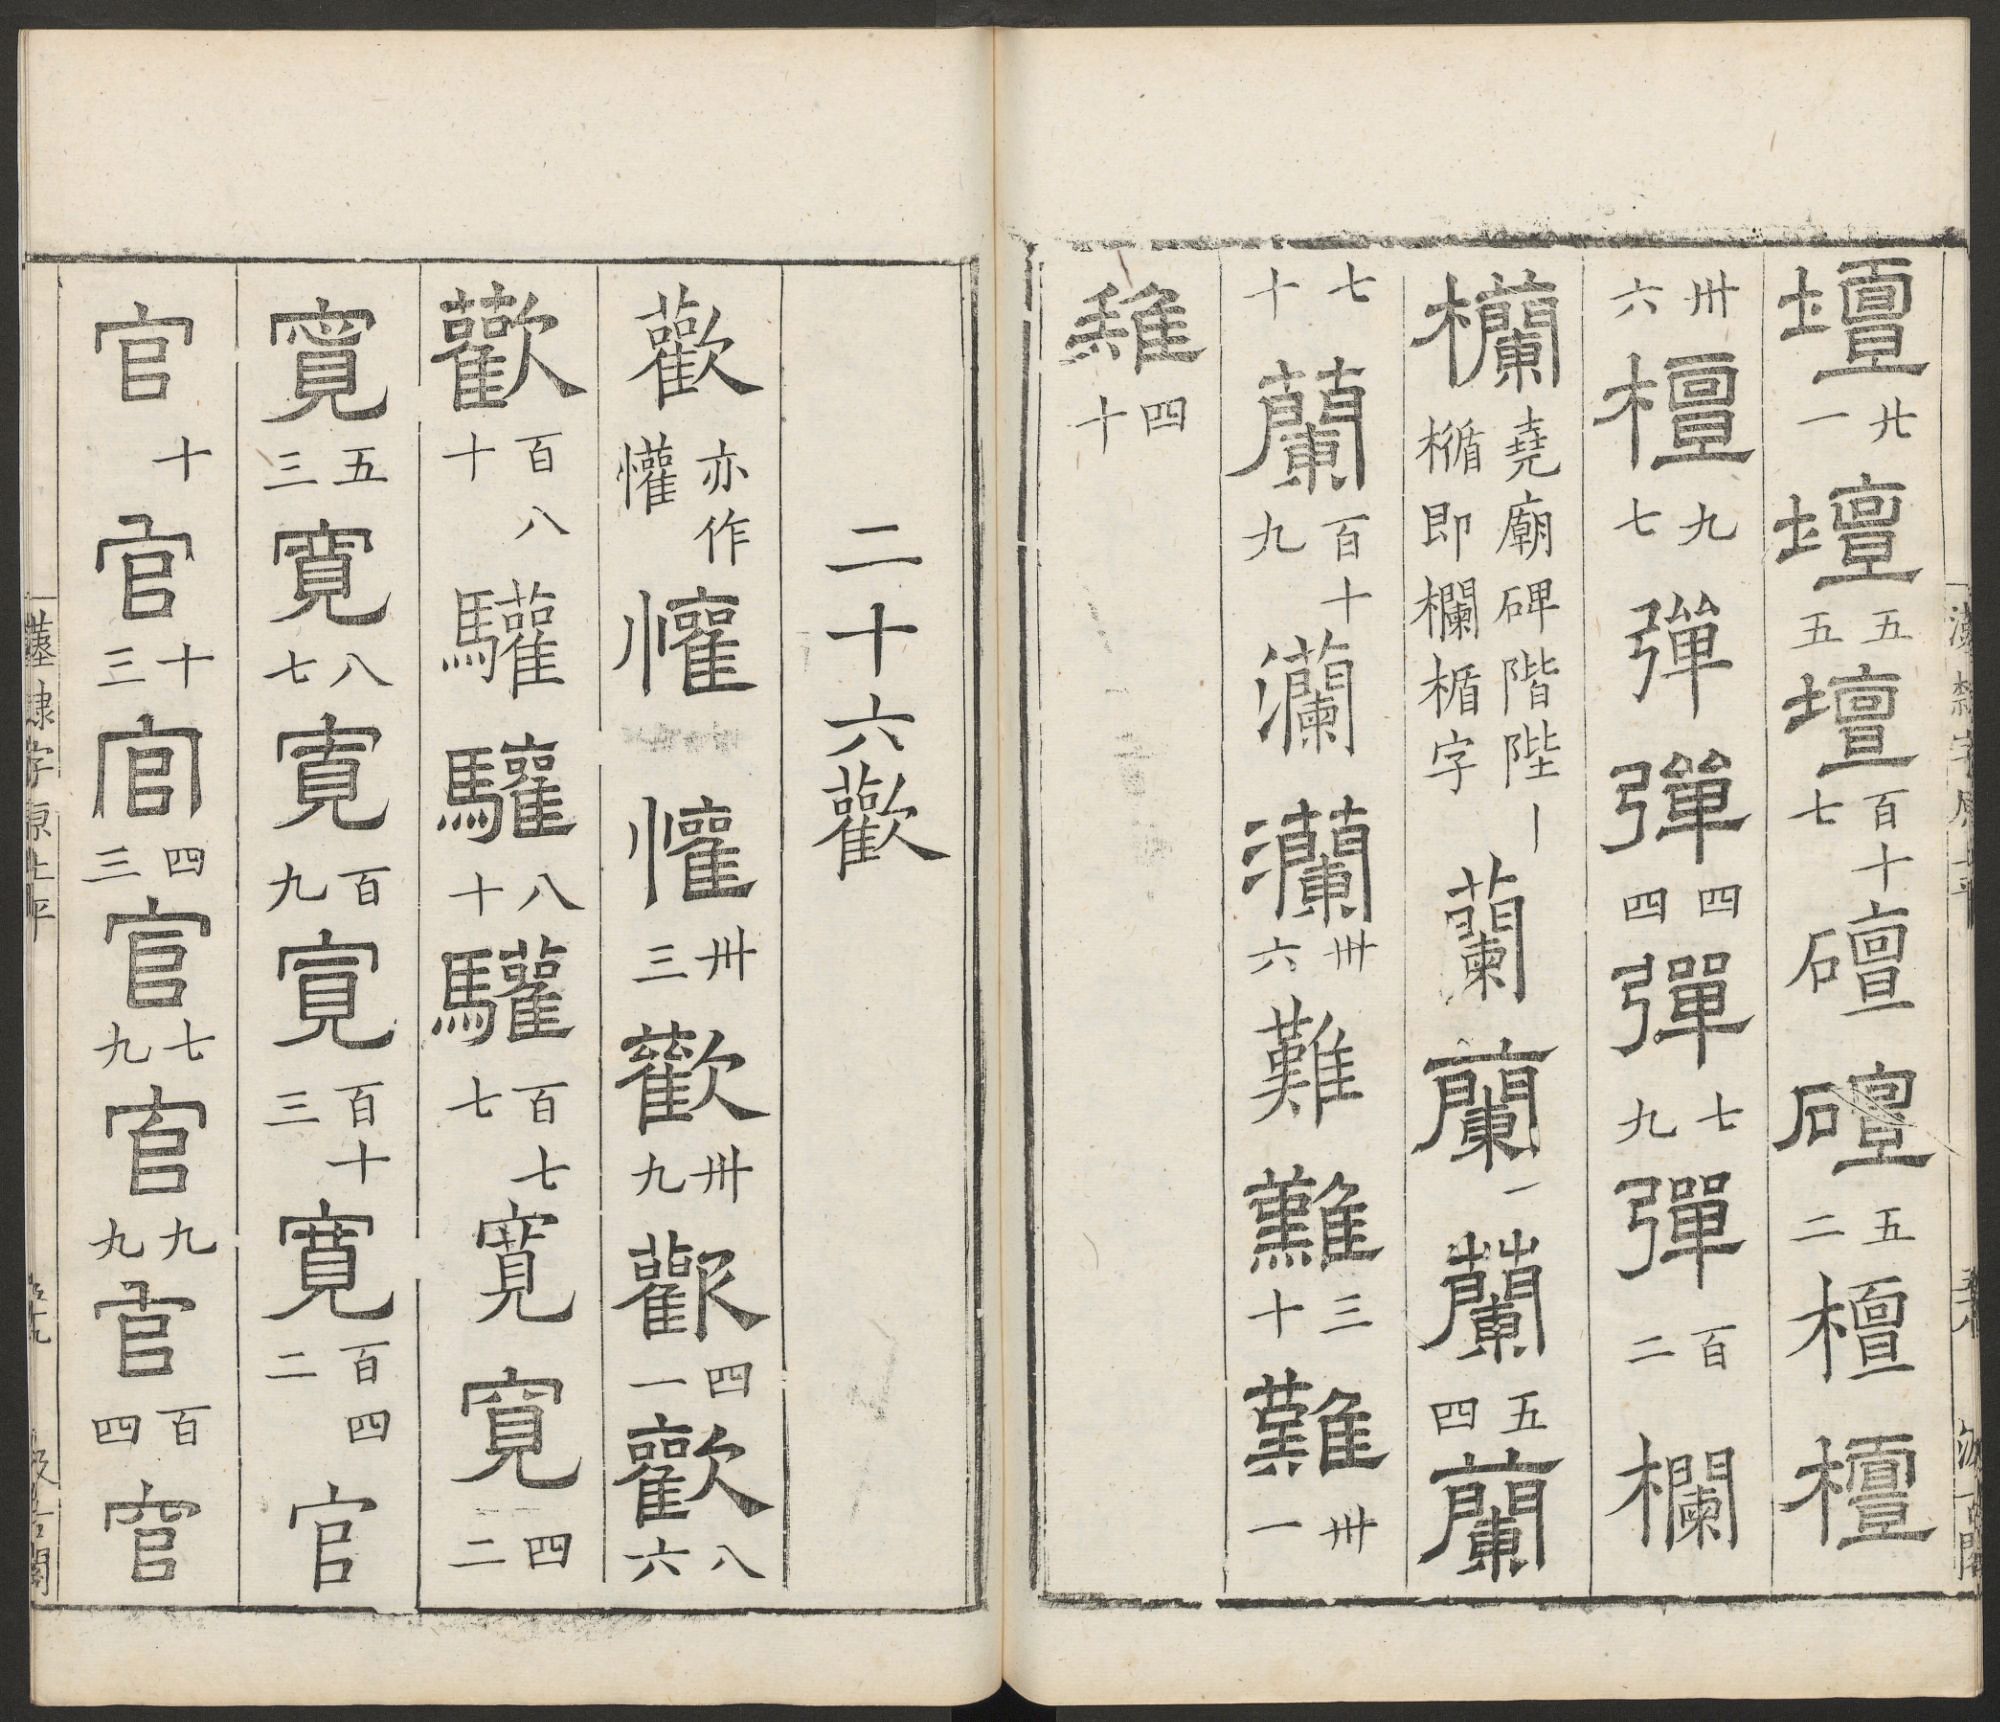 壇廿一壇五五壇百十七䃪䃪五二檀檀
卅六檀九七彈彈四四彈七九彈百二欄
欄堯廟碑階陛〡楯即欄楯字蘭蘭一蘭五四蘭
七十蘭百十九瀾瀾卅六難難三十難卅一
難四十
二十六歡
歡亦作懽懽懽卅三歡卅九歡四一歡八六
歡百八十驩驩八十驩百七七寬寬四二
寬五三寬八七寬百九寬百十三寬百四二官
官十官十三官四三官七九官九九官百四官
漢隸字原上平
五十九
汲古閣